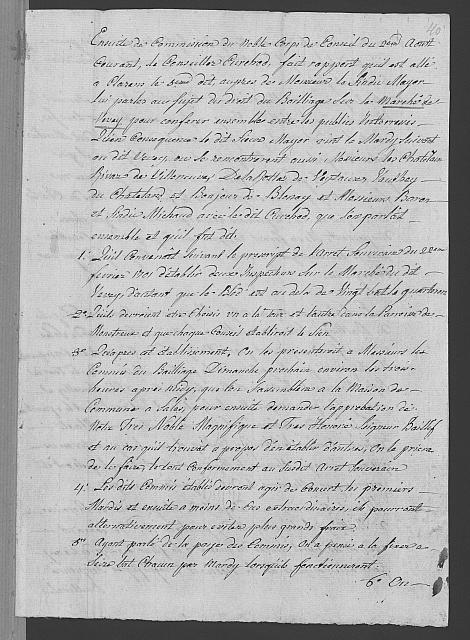 40
Ensuite de Commission du Noble Corps de Conseil du 2end Aoust
Courant, le Conseiller Curchod, fait rapport qu'il est allé
à Clarens le 5eme dit aupres de Monsieur le Sindic Mayor
lui parler au sujet du droit du Bailliage sur le Marché de
Vevey pour conferer ensemble entre les publics Interressés
Qu'en Consequence le dit Sieur Mayor vint le Mardy suivant
au dit Vevey, ou se rencontrerent aussi Messieurs les Chatelain
de Villeneuve, De la Rottaz de Veytaux, Vauthey
du Chatelard, et Bonjour de Blonay et Messieurs Baron
et Sindic Michaud avec le dit Curchod, que l'on parlat
ensemble et qu'il fut dit.
1. Qu'il Convenoit suivant le prescript de l'Arret Souverain du
fevrier 1701 d'établir deux Inspecteurs sur le Marché du dit
Vevey d'autant que le Bled est au dela de Vingt batz le quarteron
2° Qu'ils devroient être Choisis un à la Tour et l'autre dans la Parroisse de
Montreux et que chaque Conseil établiroit le Sien
3° Qu'apres cet établissement, On les presenteroit à Messieurs les
Commis du Bailliage Dimanche prochain environ les trois
heures apres Midy, que l'on s'assemblera à la Maison de
Commune à Salaz pour ensuite demander l'approbation de
Notre Tres Noble Magnifique et Tres Honoré Seigneur Baillif
et au cas qu'il trouvat à propos d'en établir d'autres, On le priera
de le faire, le tout Conformement au susdit Arret Souverain
4° Les dits Commis établis devront agir de Concert les premiers
Mardis et ensuite à moins de Cas extraordinaires, ils pourront
alternativement pour eviter plus grands fraix
5° Ayant parlé de la paye des Commis, On a pensé à la fixer à
Seize batz Chacun par Mardy lorsqu'ils fonctionneront
6° On